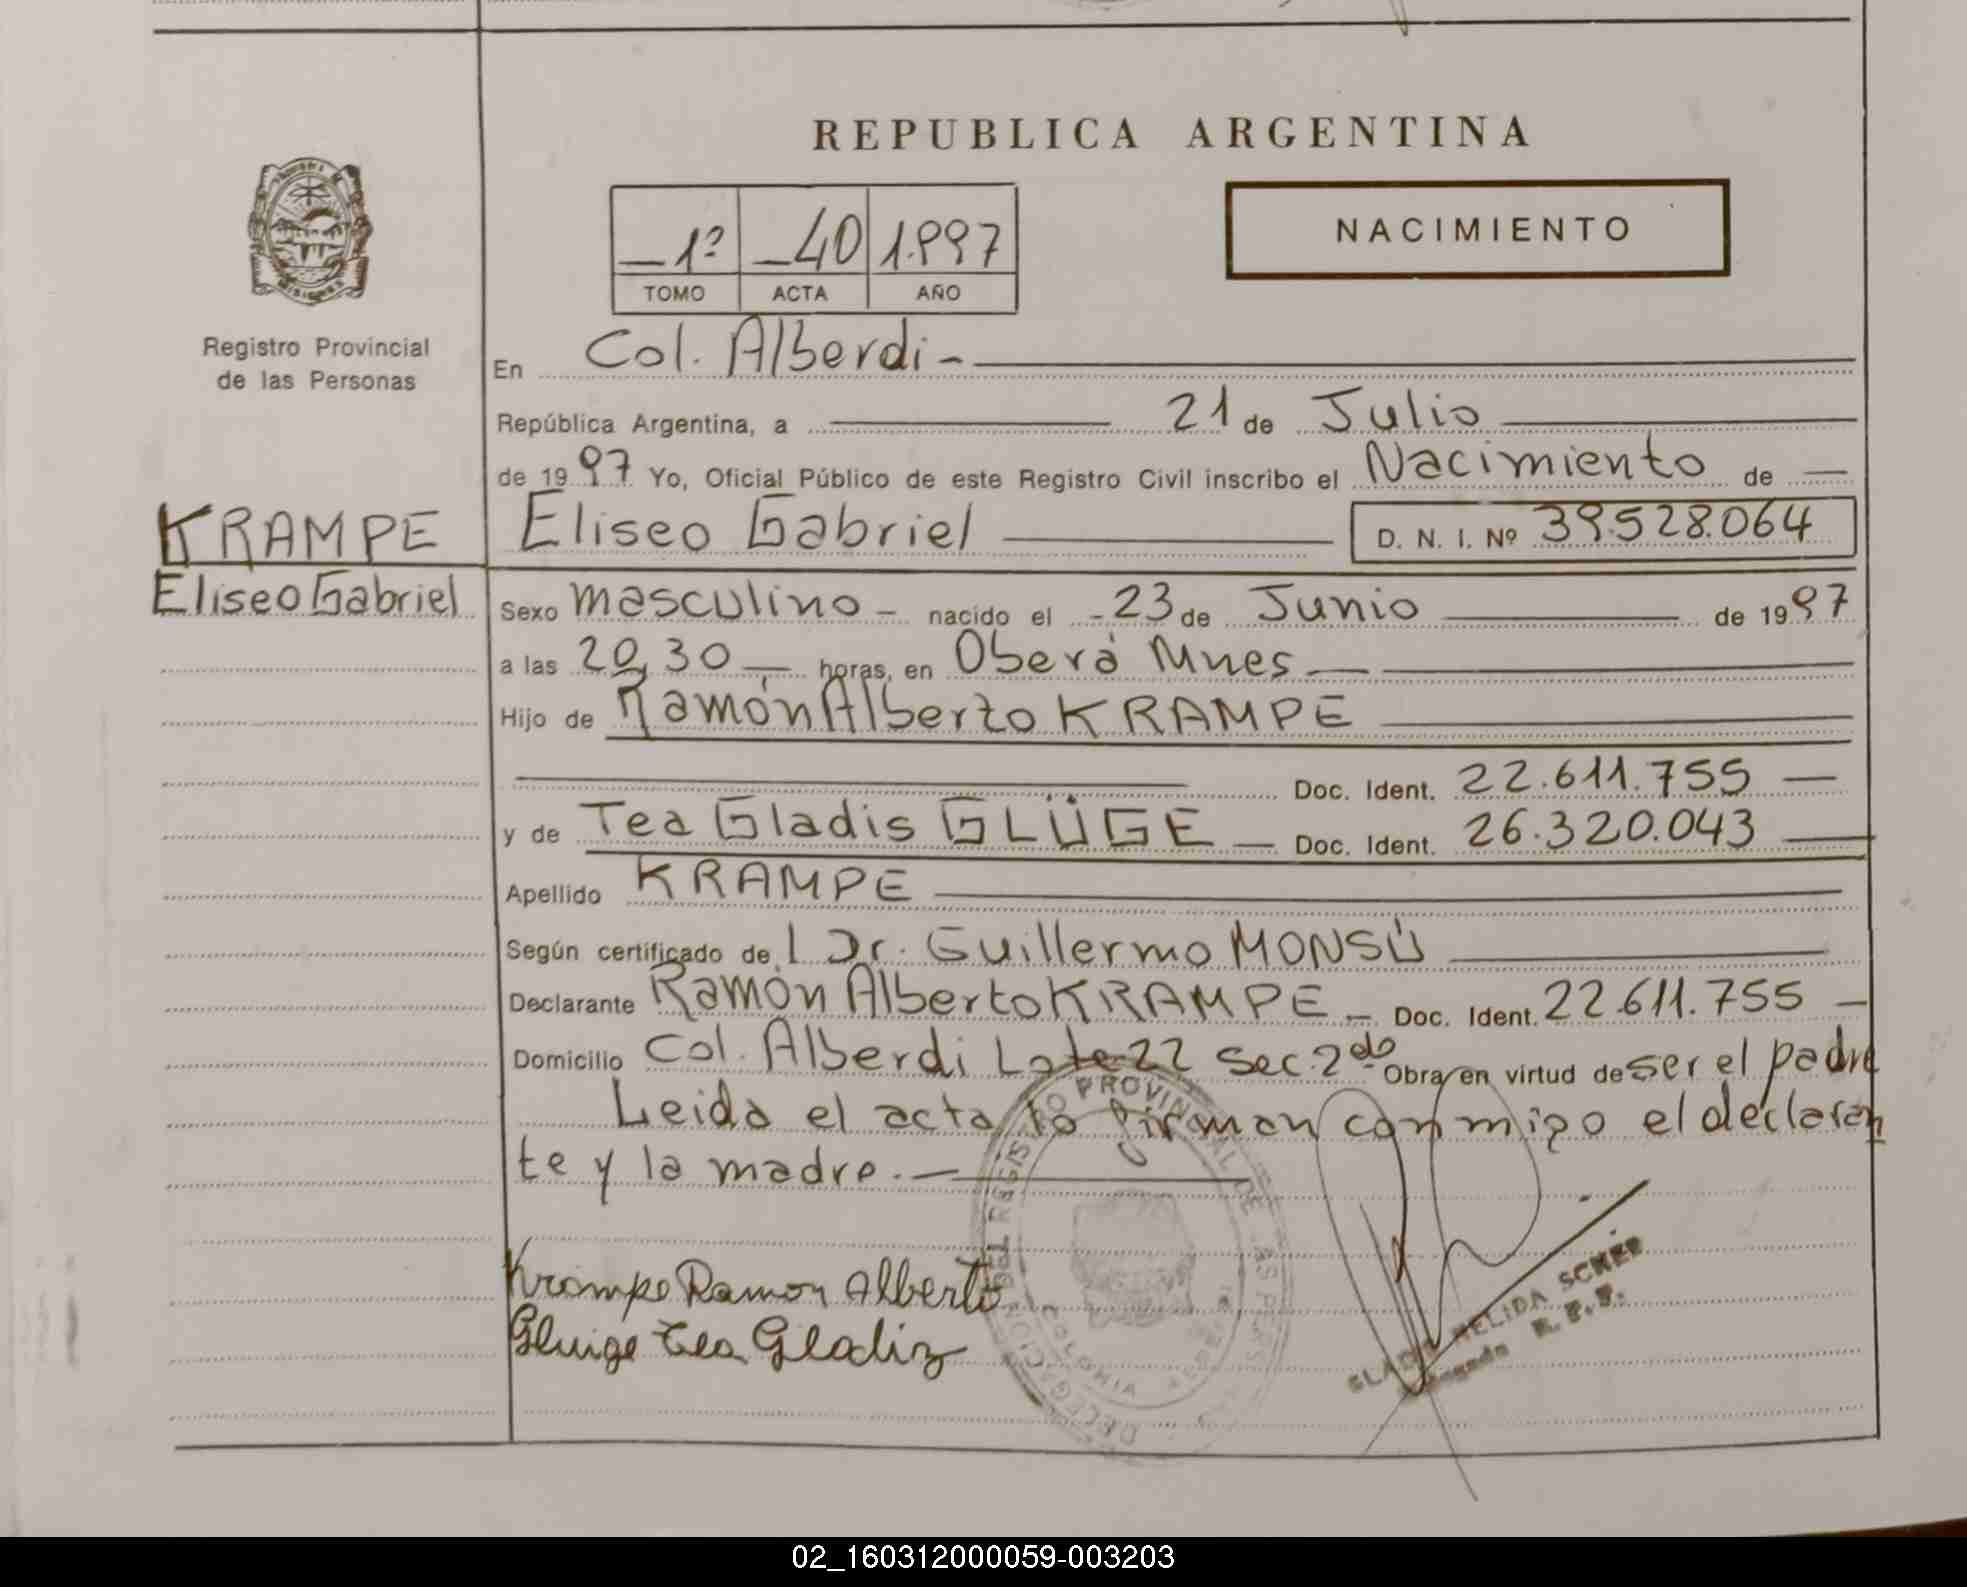 REPUBLICA ARGENTINA
1º 40 1.997
TOMO ACTA AÑO
NACIMIENTO
MISIONES
Registro Provincial
de las Personas
En Col. Alberdi -
República Argentina, a 21 de Julio
de 1997 Yo, Oficial Público de este Registro Civil inscribo el Nacimiento de
KRAMPE
Eliseo Gabriel
Eliseo Gabriel D. N. I. Nº 39.528.064
Sexo masculino - nacido el 23 de Junio de 1997
a las 20,30 horas, en Oberá Mnes
Hijo de Ramón Alberto KRAMPE
Doc. Ident. 22.611.755
y de Tea Gladis GLÜGE Doc. Ident. 26.320.043
Apellido KRAMPE
Según certificado de l Dr. Guillermo MONSÚ
Declarante Ramón Alberto KRAMPE Doc. Ident. 22.611.755
Domicilio Col. Alberdi Lote 22 Sec. 2da Obra en virtud de ser el padre
Leida el acta la firman conmigo el declaran
te y la madre.
Krampe Ramon Alberto
Gluige Tea Gladiz
REGISTRO PROVINCIAL DE LAS PERS
DELEGACION
COLONIA
NELIDA SCHER
R. P. P.
02_160312000059-003203